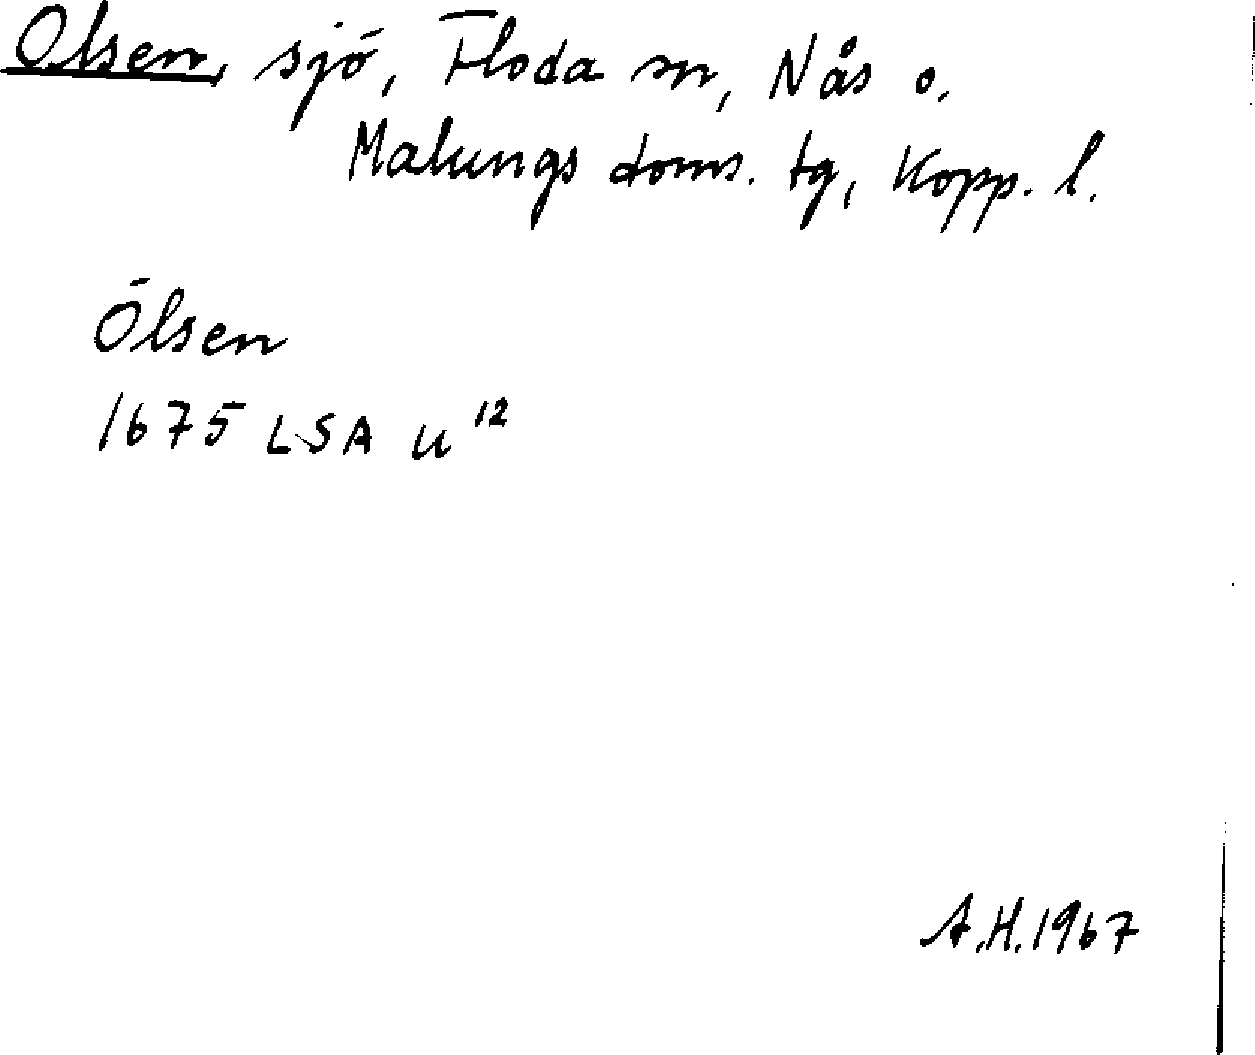 Olsen, sjö, Floda sn, Nås o.
Malungs doms. tg, Kopp. l.
Ölsen
1675 LSA U 12
A.H. 1967